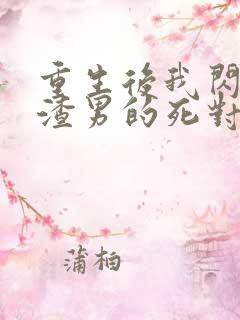 重生後我閃
渣男的死對
蒲柏